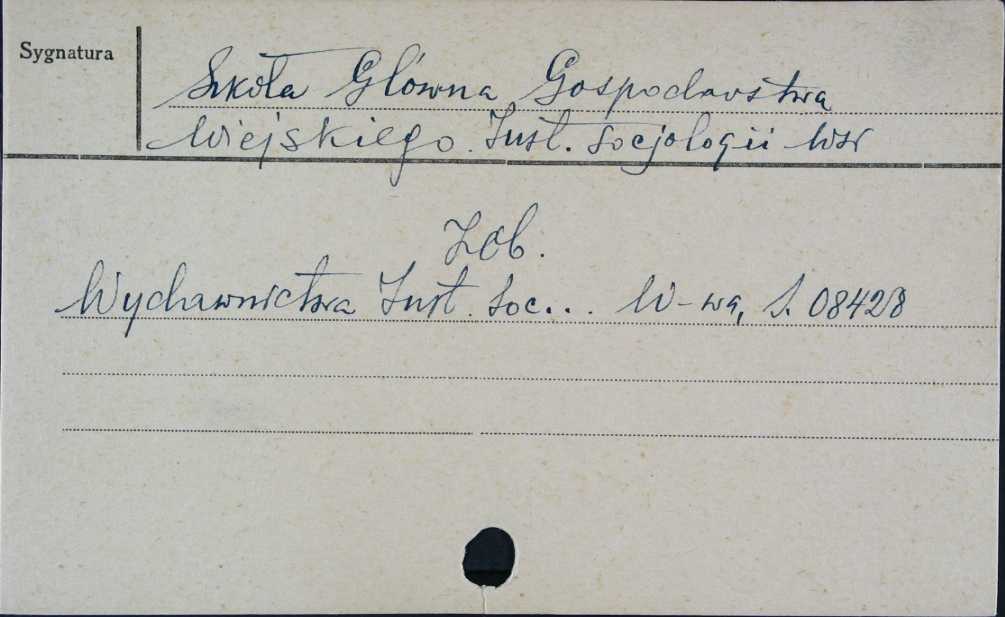 Sygnatura
Szkoła Główna Gospodarstwa
Wiejskiego. Inst. Socjologii Wsi
Zob.
Wydawnictwa Inst. Soc... W-wa, S. 08428